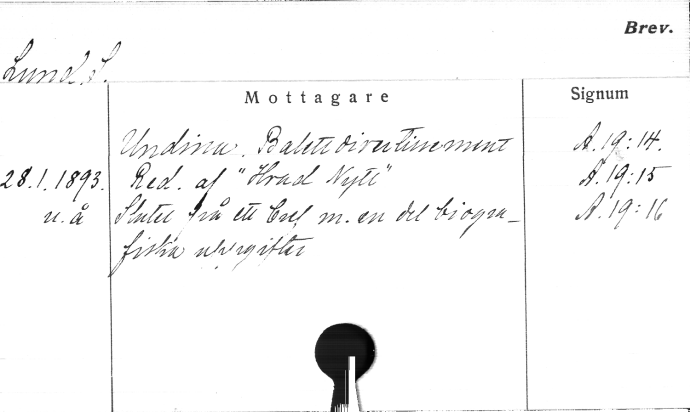 Brev.
Lund, S.
Mottagare Signum
Undina. Balettdivertissement A. 19:14.
28.1.1893. Red. af "Hvad Nytt" A. 19:15
u. å Slutet på ett bref m. en del biogra- A. 19:16
fiska uppgifter